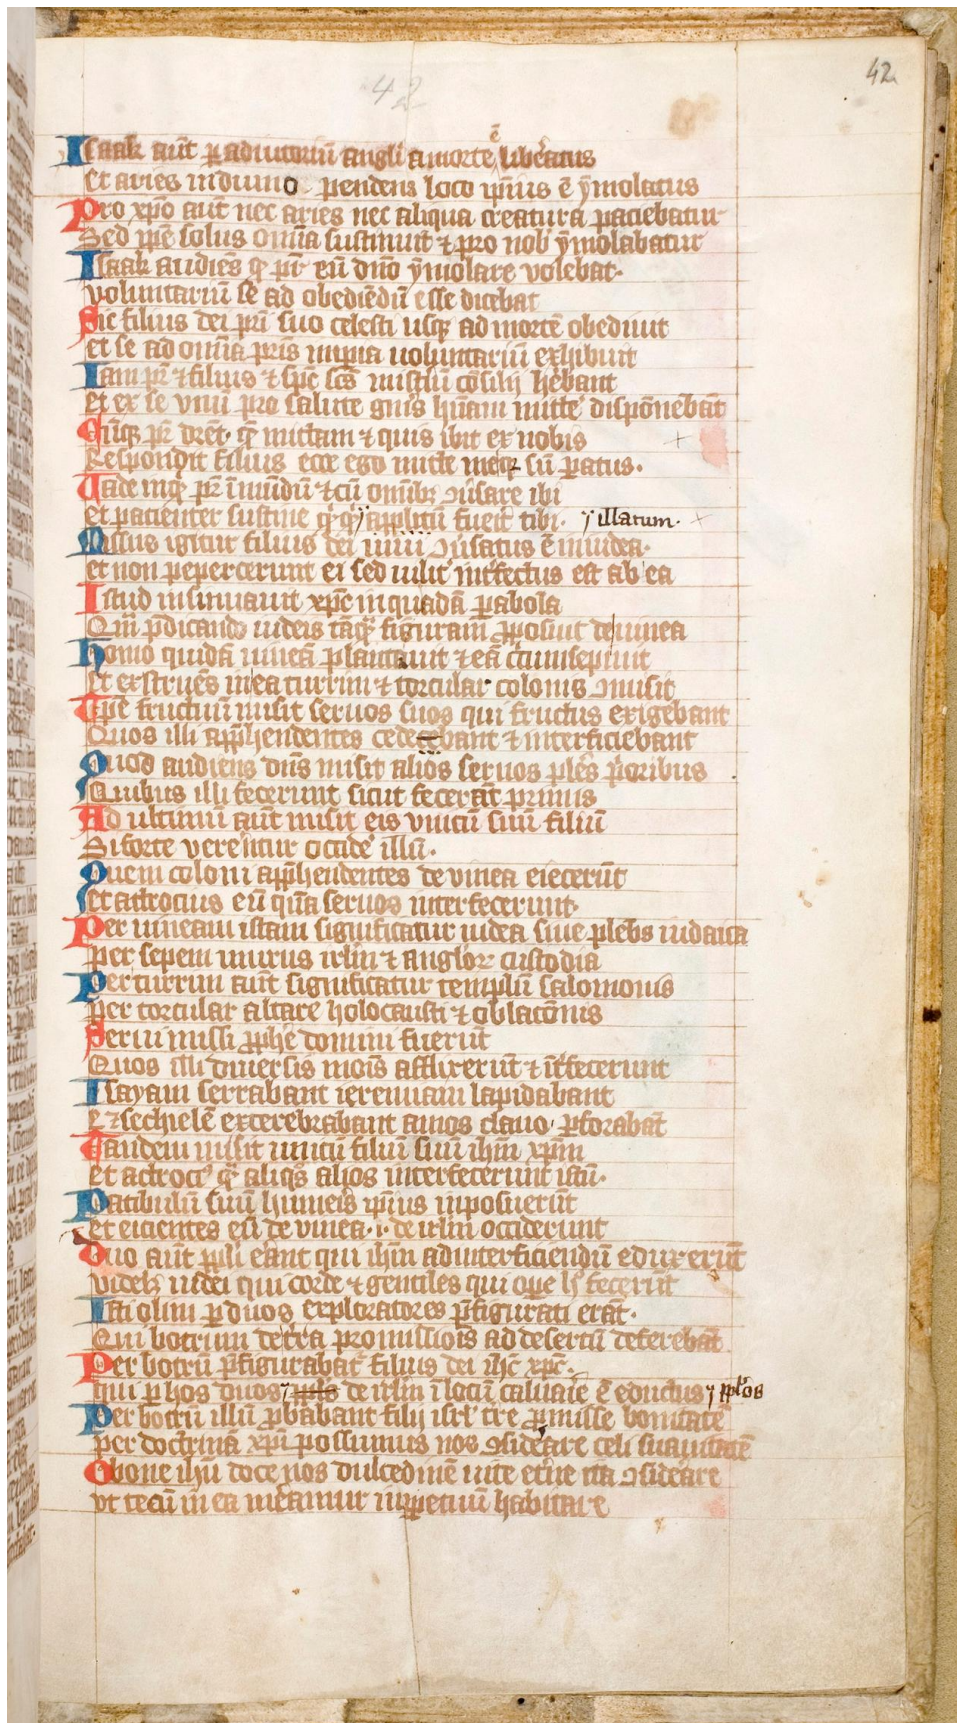 42
42
Isaak aūt ꝑ adiutoriū angli a morte ē lib̄atus
Et aries in dumo pendens loco ip̄ius ē ymolatus
Pro xp̄o aūt nec aries nec aliqua creatura paciebatur
Sed ip̄e solus om̄ia sustinuit ⁊ pro nob̄ ymolabatur
Isaak audiēs ꝙ pr̄ eū dn̄o ymolare volebat.
voluntariū se ad obediēdū esse dicebat
Sic filius dei pr̄i suo celesti usq̄ ad mortē obediuit
et se ad om̄ia pr̄is imꝑia uoluntariū exhibuit
Iam pr̄ ⁊ filius ⁊ sp̄c sc̄s mistiū cōsilij hēbant
et ex se vnū pro salute gn̄is hūani mitte᷑ disponebāt
Cūq̄ pr̄ dr̄et. quē mittam ⁊ quis ibit ex nobis
Respondit filius ecce ego mitte meqꝫ sū ꝑatus.
Uade inq̄ pr̄ ī mūdū ⁊ cū om̄ibꝫ ꝯūsare ibi
et pacienter sustine q̄q̄ applitū fueit tibi. illatum.
Missus igitur filius dei ꝯūsatus ē in iudea.
et non pepercerunt ei sed uilit᷑ int᷑fectus est ab ea
Istud insinuauit xp̄c in quadā ꝑabola
Qm̄ p̄dicando iudeis tāq̄ figuram ꝓposuit de uinea
Homo quidā uineā plantauit ⁊ eā c̄cumsepiuit
Et exstruēs in ea turrim ⁊ torcular colonis ꝯmisit
Tp̄e fructuū misit seruos suos qui fructus exigebant
Quos illi app̄hendentes cedebant ⁊ interficiebant
Quod audiens dn̄s misit alios seruos pl̄es p̄oribus
Quibus illi fecerunt sicut fecerāt primis
Ad ultimū aūt misit eis vnicū suū filiū
Si forte verentur occide᷑ illū.
Quem coloni app̄hendentes de vinea eiecerūt
et attrocius eū qm̄a seruos interfecerunt.
Per uineam istam significatur iudea siue plebs iudaica
Per sepem murus irl̄m ⁊ angloꝝ custodia
Per turrim aūt significatur templū salomonis
Per torcular altare holocausti ⁊ oblacōnis
Serui missi ꝓph̄e domini fuerūt
Quos illi diuersis mois afflixerūt ⁊ īt᷑fecerunt
Isayam serrabant ieremiam lapidabant
Ezechielē excerebrabant amos clauo ꝑforabāt
Tandem misit unicū filiū suū ih̄m xp̄m
et actroci᷒ q̄ aliq̄s alios interfecerunt istū.
Patibulū suū humeis ip̄ius inposuerūt
et eicientes eū de vinea .i. de irl̄m occiderunt
Duo aūt ppl̄i eānt qui ih̄m ad interficiendū eduxerūt
videlꝫ iudei qui corde ⁊ gentiles qui oꝑe h᷒ fecerūt
Isti olim ꝑ duos exploratores p̄figurati erāt.
Qui botrum de t̄ra promissiōis ad desertū deferebāt
Per botrū p̄figurabat᷑ filius dei ih̄c xp̄c.
Qui ꝑ hos duos de irl̄m ī locū caluaie ē eductus ppl̄os
Per botrū illū ꝓbabant filij isrl̄ tre ꝓmisse bonitatē
per doctrinā xp̄i possumus nos ꝯsid̄are celi suauitatē
O bone ih̄u doce nos dulcedinē uite et̄ne ita ꝯsid̄are
vt tecū in ea meamur inꝑpetuū habitare